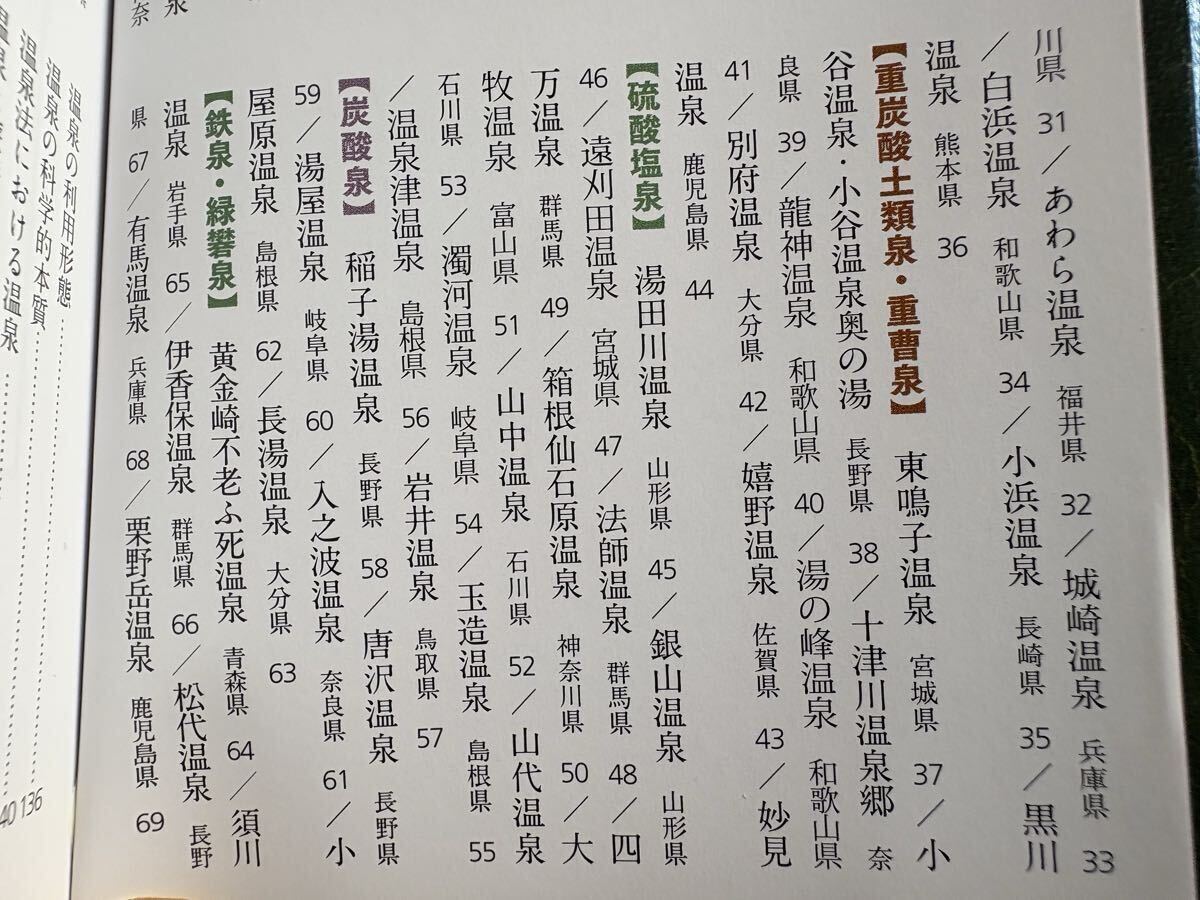 川県 31/あわら温泉 福井県 32/城崎温泉 兵庫県 33
/白浜温泉 和歌山県 34/小浜温泉 長崎県 35/黒川
温泉 熊本県 36
【重炭酸土類泉・重曹泉】 東鳴子温泉 宮城県 37/小
谷温泉・小谷温泉奥の湯 長野県 38/十津川温泉郷 奈
良県 39/龍神温泉 和歌山県 40/湯の峰温泉 和歌山県
41/別府温泉 大分県 42/嬉野温泉 佐賀県 43/妙見
温泉 鹿児島県 44
【硫酸塩泉】 湯田川温泉 山形県 45/銀山温泉 山形県
46/遠刈田温泉 宮城県 47/法師温泉 群馬県 48/四
万温泉 群馬県 49/箱根仙石原温泉 神奈川県 50/大
牧温泉 富山県 51/山中温泉 石川県 52/山代温泉
石川県 53/濁河温泉 岐阜県 54/玉造温泉 島根県 55
/温泉津温泉 島根県 56/岩井温泉 鳥取県 57
【炭酸泉】 稲子湯温泉 長野県 58/唐沢温泉 長野県
59/湯屋温泉 岐阜県 60/入之波温泉 奈良県 61/小
屋原温泉 島根県 62/長湯温泉 大分県 63
【鉄泉・緑礬泉】 黄金崎不老ふ死温泉 青森県 64/須川
温泉 岩手県 65/伊香保温泉 群馬県 66/松代温泉 長野
県 67/有馬温泉 兵庫県 68/栗野岳温泉 鹿児島県 69
温泉の利用形態
温泉の科学的本質
温泉法における温泉
136